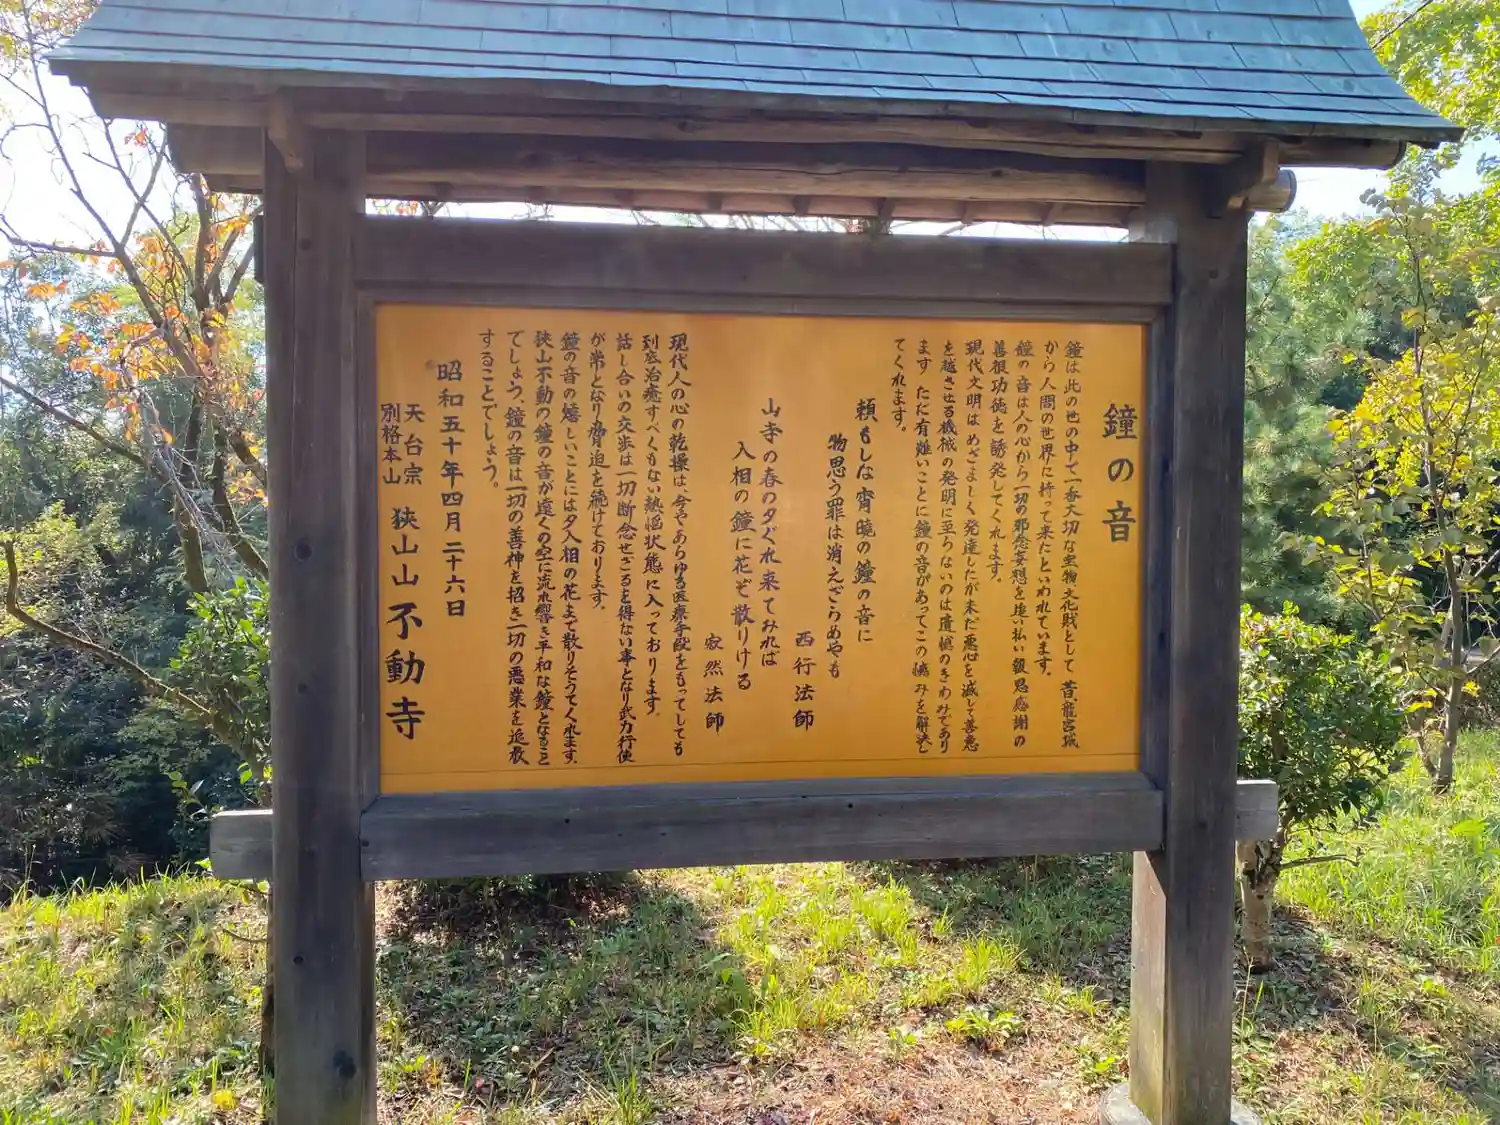 鐘の音
鐘は此の世の中で一番大切な宝物文化財として 昔、龍宮城
から人間の世界に持って来たといわれています。
鐘の音は人の心から一切の邪念妄想を追い払い報恩感謝の
善根功徳を誘発してくれます。
現代文明はめざましく発達したが未だ悪心を滅して善悪
を越させる機械の発明に至らないのは遺憾のきわみであり
ます ただ有難いことに鐘の音があってこの憾みを解決し
てくれます。
頼もしな宵暁の鐘の音に
物思う罪は消えざらめやも
西行法師
山寺の春の夕ぐれ来てみれば
入相の鐘に花ぞ散りける
寂然法師
現代人の心の乾燥は今やあらゆる医療手段をもってしても
到底治癒すべくもない熱悩状態に入っております。
話し合いの交歩は一切断念せざるを得ない事となり武力行使
が常となり脅迫を続けております。
鐘の音の嬉しいことには夕入相の花まで散りそうてくれます、
狭山不動の鐘の音が遠くの空に流れ響き平和な鐘となること
でしょう、鐘の音は一切の善神を招き一切の悪業を追散
することでしょう。
昭和五十年四月二十六日
天台宗
別格本山
狭山山不動寺